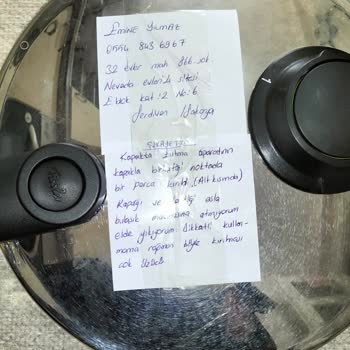 EMİNE YILMAZ
0554 843 6967
32 evler mah 866. sok.
Nevada evleri A sitesi
E blok kat: 2 No: 6
Serdivan / Sakarya
ŞİKAYET
Kapakta tutma aparatının
kapakla birleştiği noktada
bir parça kırıldı. (Alt kısımda)
Kapağı ve asla
bulaşık makinasına atmıyorum
elde yıkıyorum. Dikkatli kullan-
mama rağmen böyle kırılması
çok
1